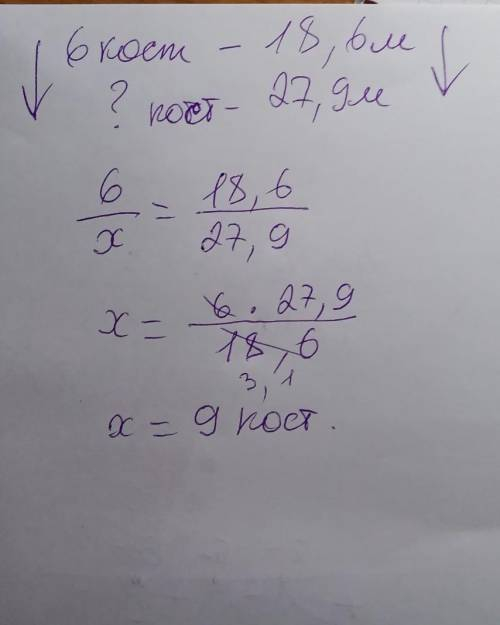 6 кост – 18,6м
? кост – 27,9м
6/x = 18,6/27,9
x = 6 · 27,9 / 18,6
3,1
x = 9 кост.